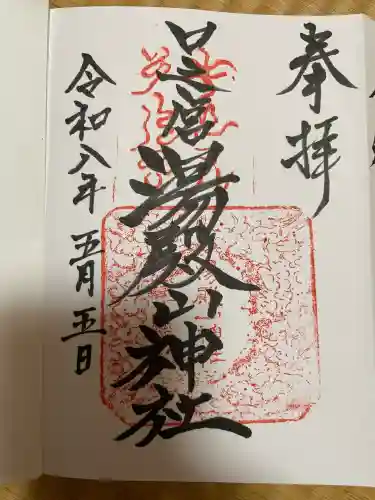 奉拝
里宮
湯殿山神社
令和八年 五月五日